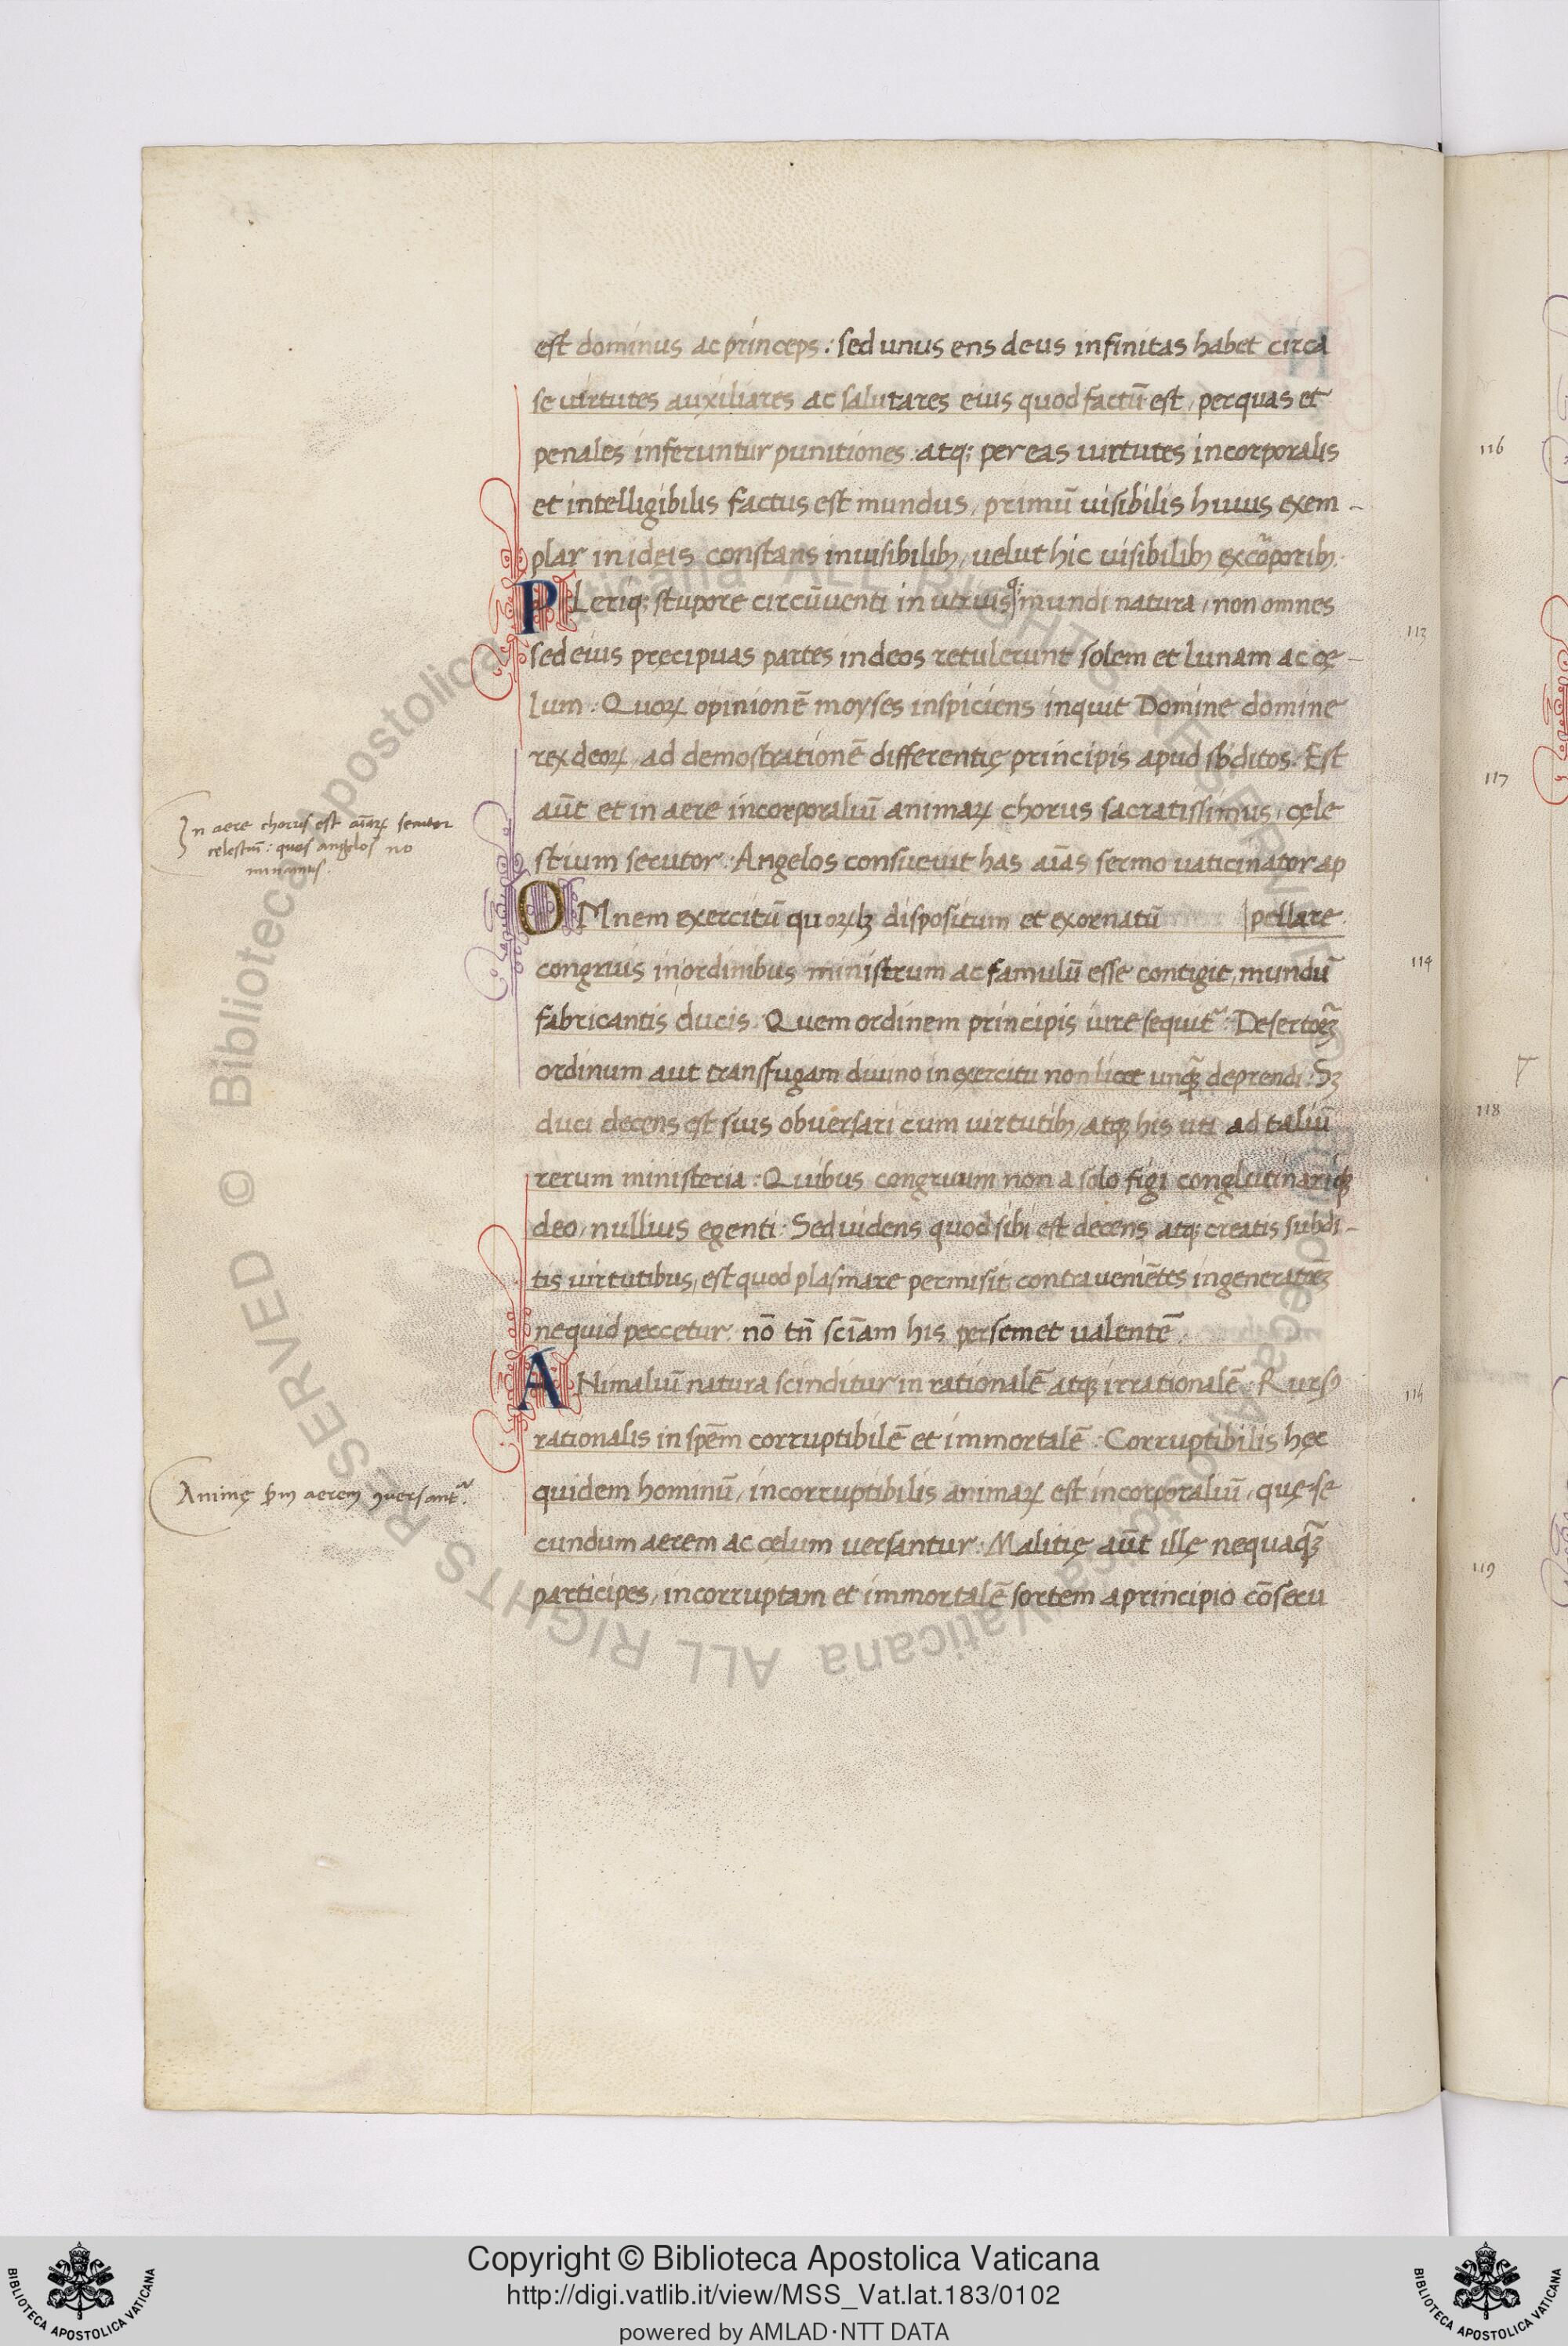 est dominus ac princeps : sed unus ens deus infinitas habet circa
se uirtutes auxiliares ac salutares eius quod factū est, per quas et
penales inferuntur punitiones . atq; per eas uirtutes incorporalis
et intelligibilis factus est mundus, primū uisibilis huius exem-
plar in ideis constans inuisibilibꝫ, uelut hic uisibilibꝫ ex cōporibꝫ.
PLeriq; stupore circūuenti in utriusq; mundi natura, non omnes
sed eius pręcipuas partes in deos retulerunt solem et lunam ac cę-
lum : Quoꝝ opinionē moyses inspiciens inquit Domine domine
rex deoꝝ, ad demostrationē differentię principis apud sb̄ditos. Est
aūt et in aere incorporaliū animaꝝ chorus sacratissimus, cęle
stium secutor : Angelos consueuit has aīas sermo uaticinator ap
pellare.
OMnem exercitū quoꝝlꝫ dispositum et exornatū
congruis in ordinibus ministrum ac famulū esse contigit, mundū
fabricantis ducis. Quem ordinem principis iure sequit᷑ : Desertoꝝ
ordinum aut transfugam diuino in exercitu non licet unqꝫ deprendi : Sꝫ
duci decens est suis obuersari cum uirtutibꝫ, atqꝫ his uti ad taliū
rerum ministeria : Quibus congruum non a solo figi conglutinariqꝫ
deo, nullius egenti : Sed uidens quod sibi est decens atq; creatis subdi-
tis uirtutibus, est quod plasmare permisit, contraueniētes in
nequid peccetur. nō tn̄ sciam his per semet ualentē.
ANimaliū natura scinditur in rationalē atqꝫ irrationalē. Rurs9
rationalis in spēm corruptibilē et immortalē : Corruptibilis hęc
quidem hominū, incorruptibilis animaꝝ est incorporaliū, quę se
cundum aerem ac cęlum uersantur : Malitię aūt illę nequaqꝫ
participes, incorruptam et immortalē sortem a principio cōsecu
In aere chorus est aīaꝝ secutor
celestiū : quas angelos no
minamus.
Animę scdm aerem ꝯuersant᷑.
113
114
115
116
117
118
119
© Biblioteca Apostolica Vaticana ALL RIGHTS RESERVED
© Biblioteca Apostolica Vaticana ALL RIGHTS RESERVED
Copyright © Biblioteca Apostolica Vaticana
http://digi.vatlib.it/view/MSS_Vat.lat.183/0102
powered by AMLAD·NTT DATA
BIBLIOTECA APOSTOLICA VATICANA
BIBLIOTECA APOSTOLICA VATICANA